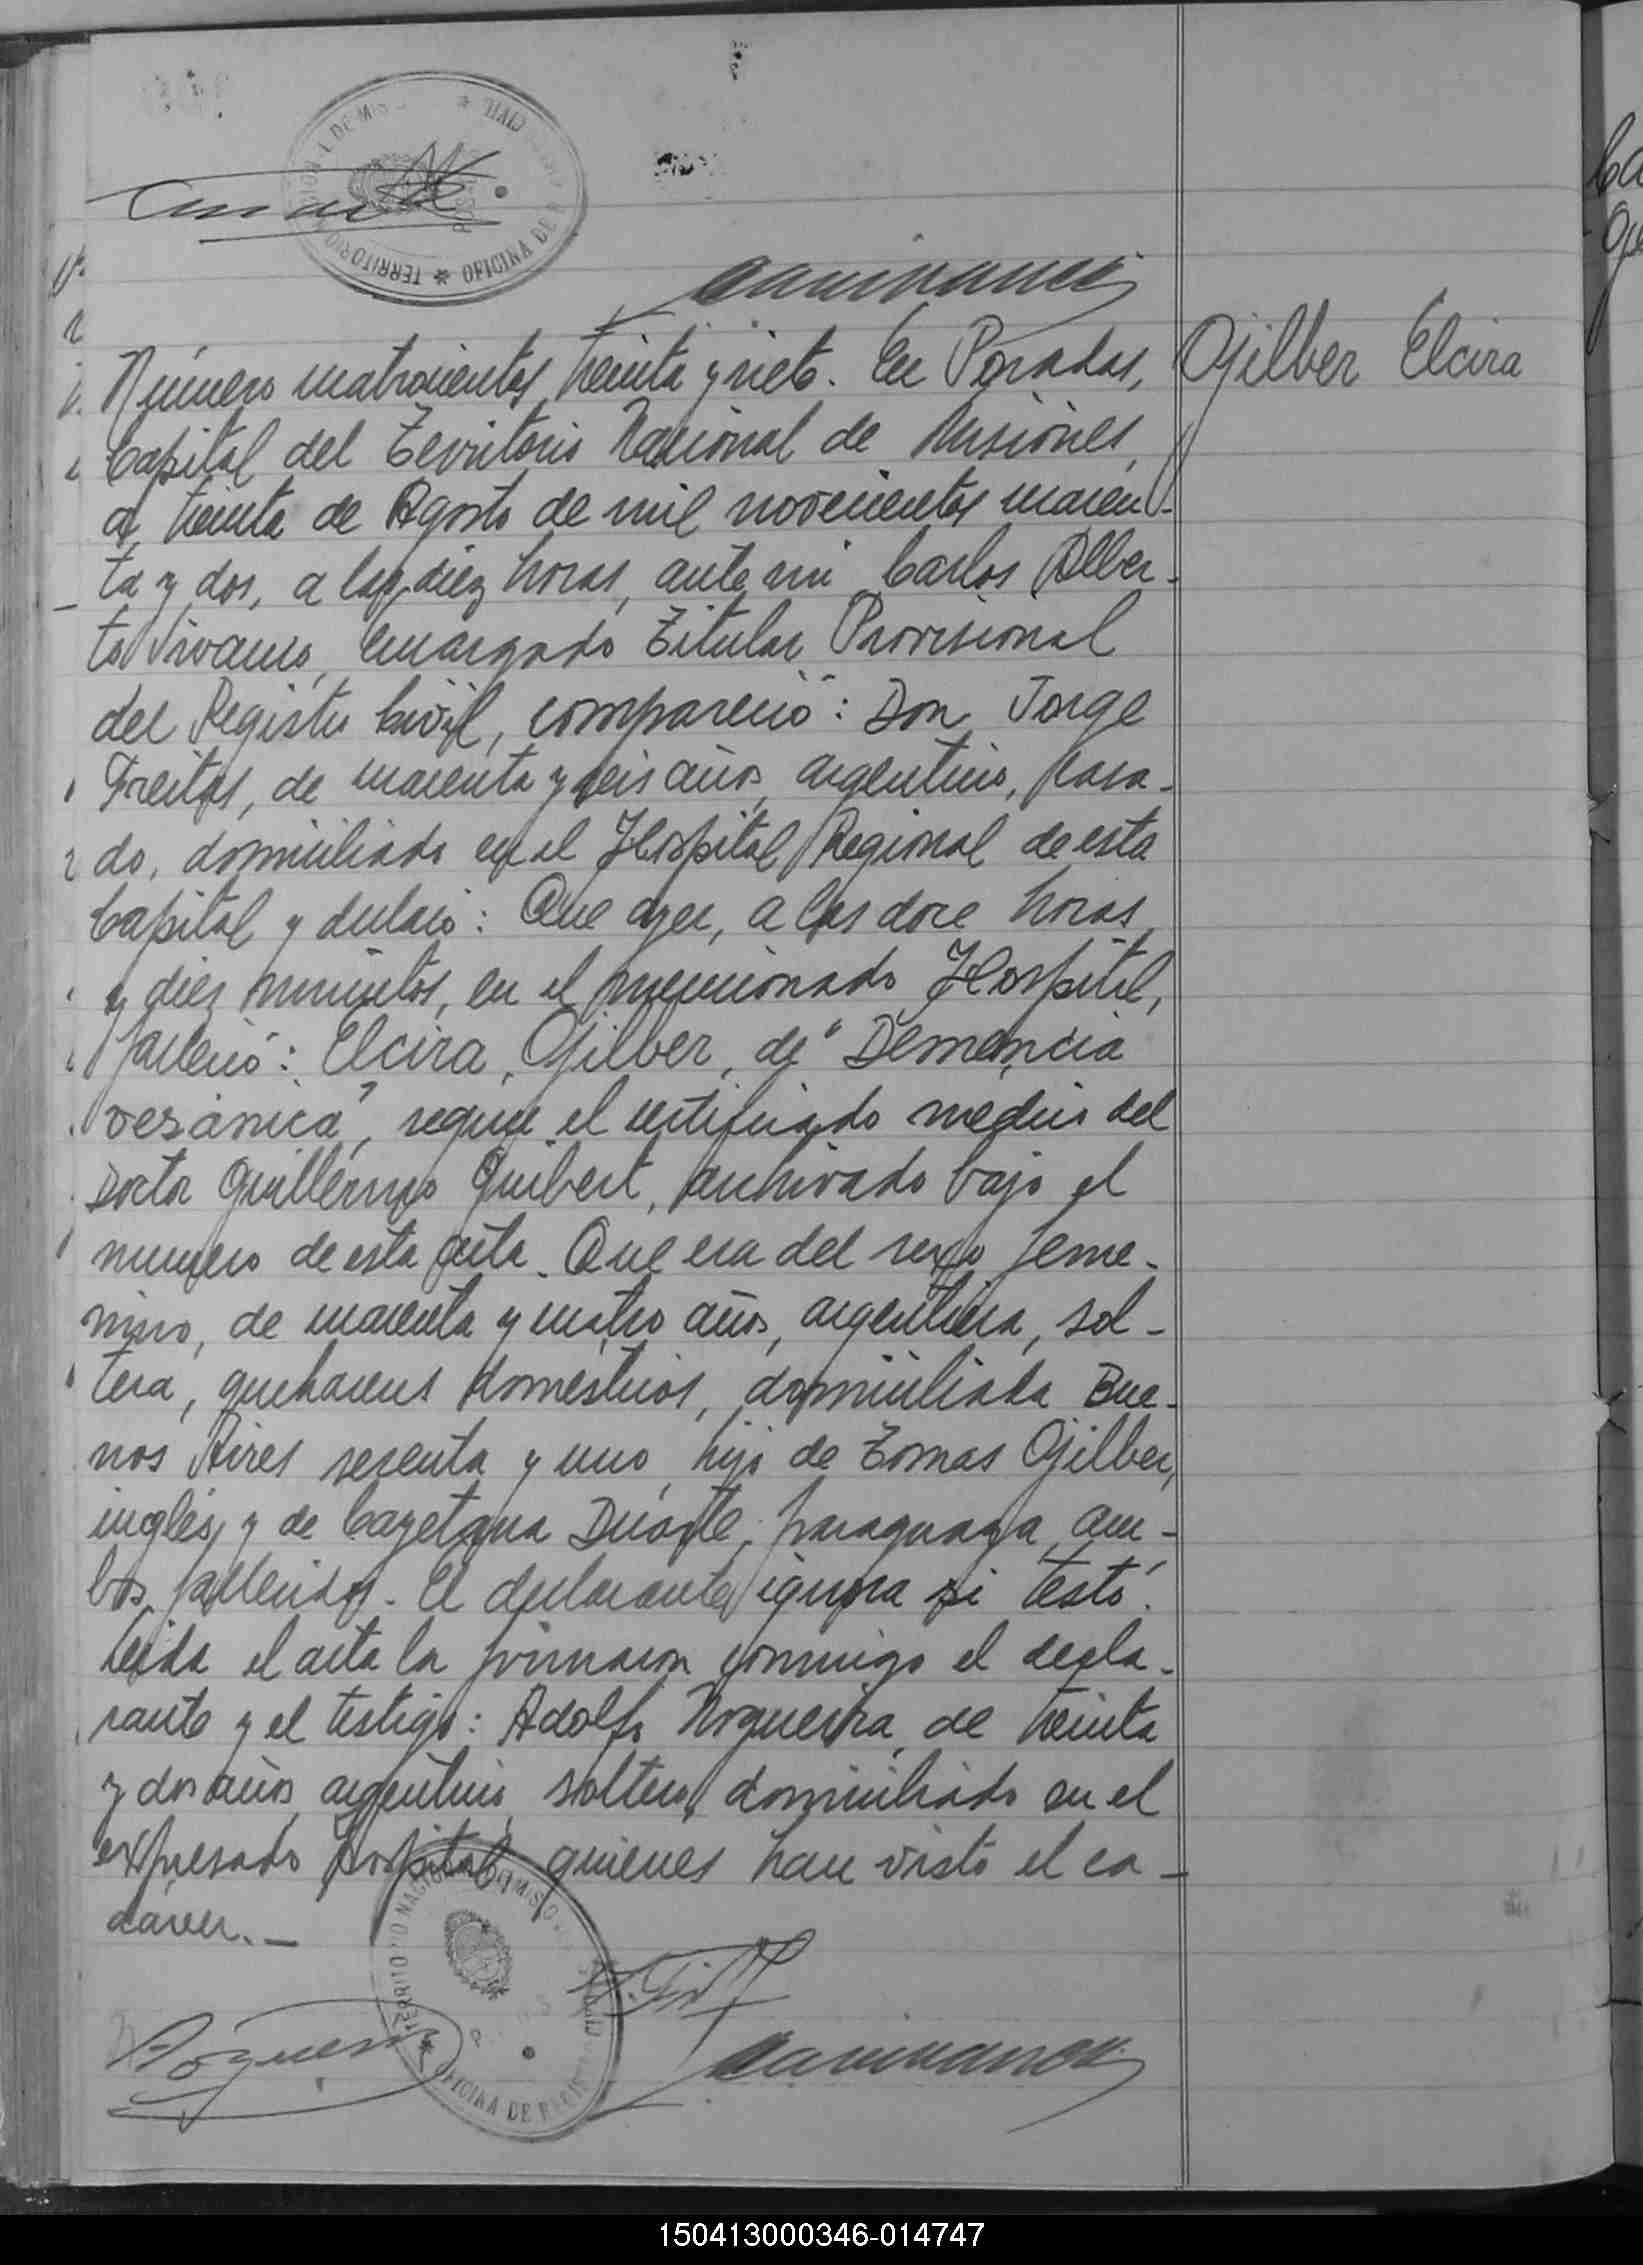 Número cuatrocientos treinta y siete. En Posadas,
Gjilber Elcira
Capital del Territorio Nacional de Misiones,
a treinta de Agosto de mil novecientos cuaren-
ta y dos, a las diez horas, ante mi Carlos Alber-
to Vivanco, Encargado Titular Provisional
del Registro Civil, compareció: Don Jorge
Freitas, de cuarenta y seis años, argentino, casa-
do, domiciliado en el Hospital Regional de esta
Capital y declaró: Que ayer, a las doce horas
y diez minutos, en el mencionado Hospital,
falleció: Elcira Gjilber, de "Demencia
vesánica", segun el certificado medico del
Doctor Guillermo Guibert, archivado bajo el
numero de esta acta. Que era del sexo feme-
nino, de cuarenta y cuatro años, argentina, sol-
tera, quehaceres domésticos, domiciliada Bue-
nos Aires sesenta y uno, hija de Tomas Gjilber,
inglés, y de Cayetana Duarte, paraguaya, am-
bos fallecidos. El declarante ignora si testó.
Leida el acta la firmaron conmigo el decla-
rante y el testigo: Adolfo Nogueira, de treinta
y dos años, argentino, soltero, domiciliado en el
expresado Hospital, quienes han visto el ca-
dáver.-
TERRITORIO NACIONAL DE MISIONES
OFICINA DE REGISTRO CIVIL
150413000346-014747